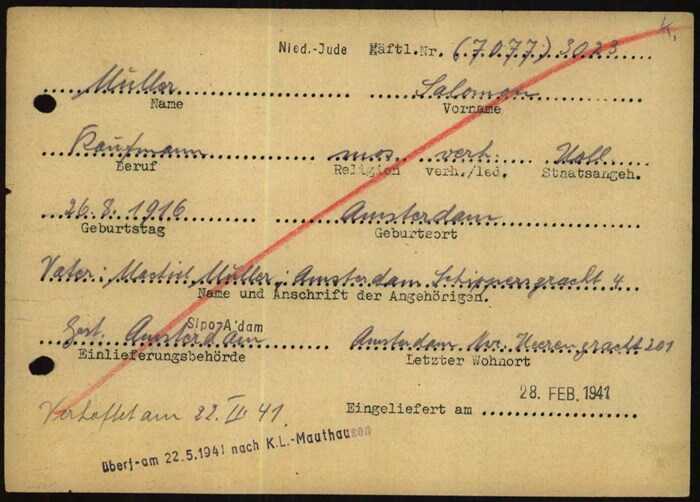 Nied.-Jude Häftl.Nr. (7077) 3023
Müller Salomon
Name Vorname
Kaufmann mos. verh. Holl
Beruf Religion verh./led. Staatsangeh.
26.8.1916 Amsterdam
Geburtstag Geburtsort
Vater: Müller, Amsterdam
Name und Anschrift der Angehörigen.
Sipo A'dam
Gest. Amsterdam Amsterdam Nw. Heerengracht 201
Einlieferungsbehörde Letzter Wohnort
28. FEB. 1941
Verhaftet am 22. II. 41. Eingeliefert am
überf-am 22.5.1941 nach K.L.-Mauthausen